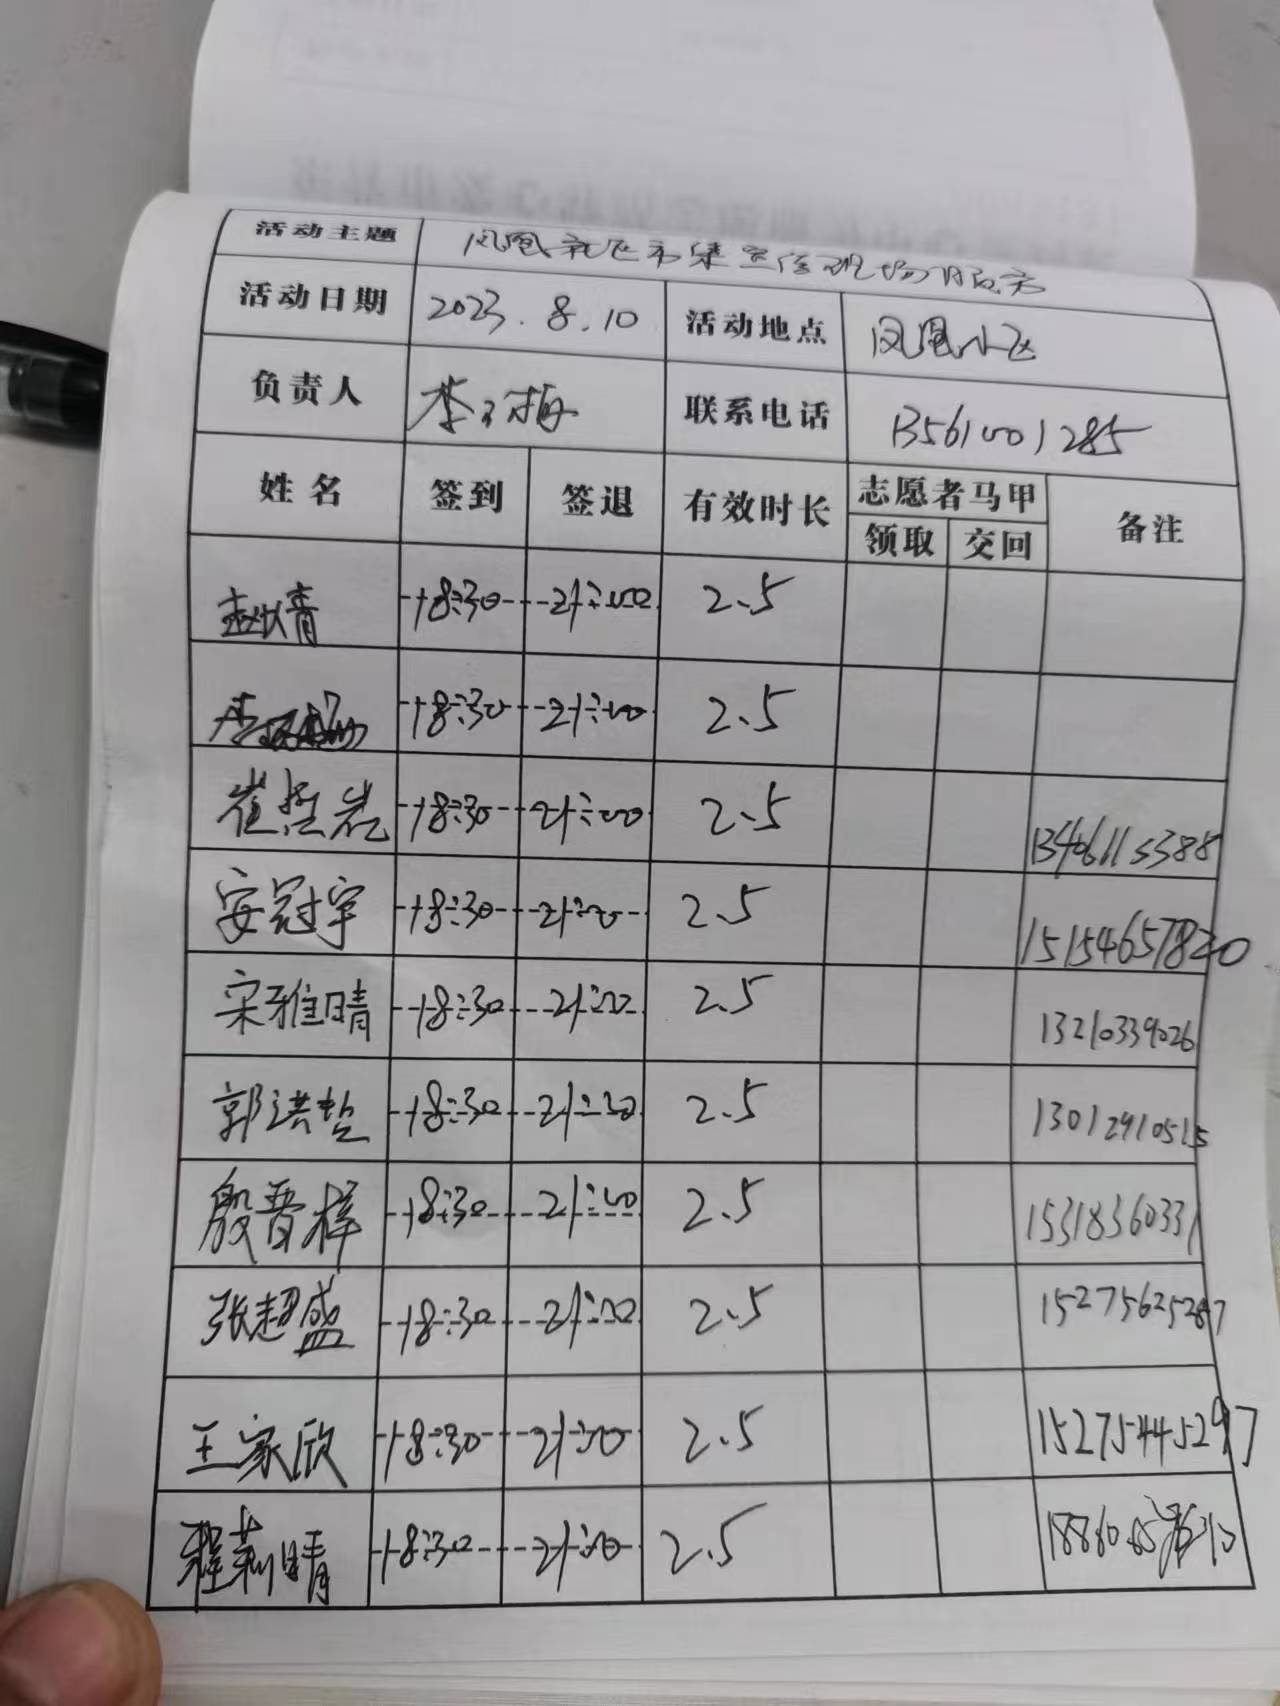 活动主题 凤凰社区市集宣传现场服务
活动日期 2023.8.10 活动地点 凤凰小区
负责人 联系电话 13561001285
姓名 签到 签退 有效时长 志愿者马甲 备注
领取 交回
18:30 21:00 2.5
18:30 21:00 2.5
18:30 21:00 2.5 13406115388
安冠宇 18:30 21:00 2.5 15154657820
宋雅晴 18:30 21:00 2.5 13210339026
郭洪哲 18:30 21:00 2.5 13012910515
殷晋梓 18:30 21:00 2.5 15318360331
张超盛 18:30 21:00 2.5 15275625287
王家欣 18:30 21:00 2.5 15275445297
程莉晴 18:30 21:00 2.5